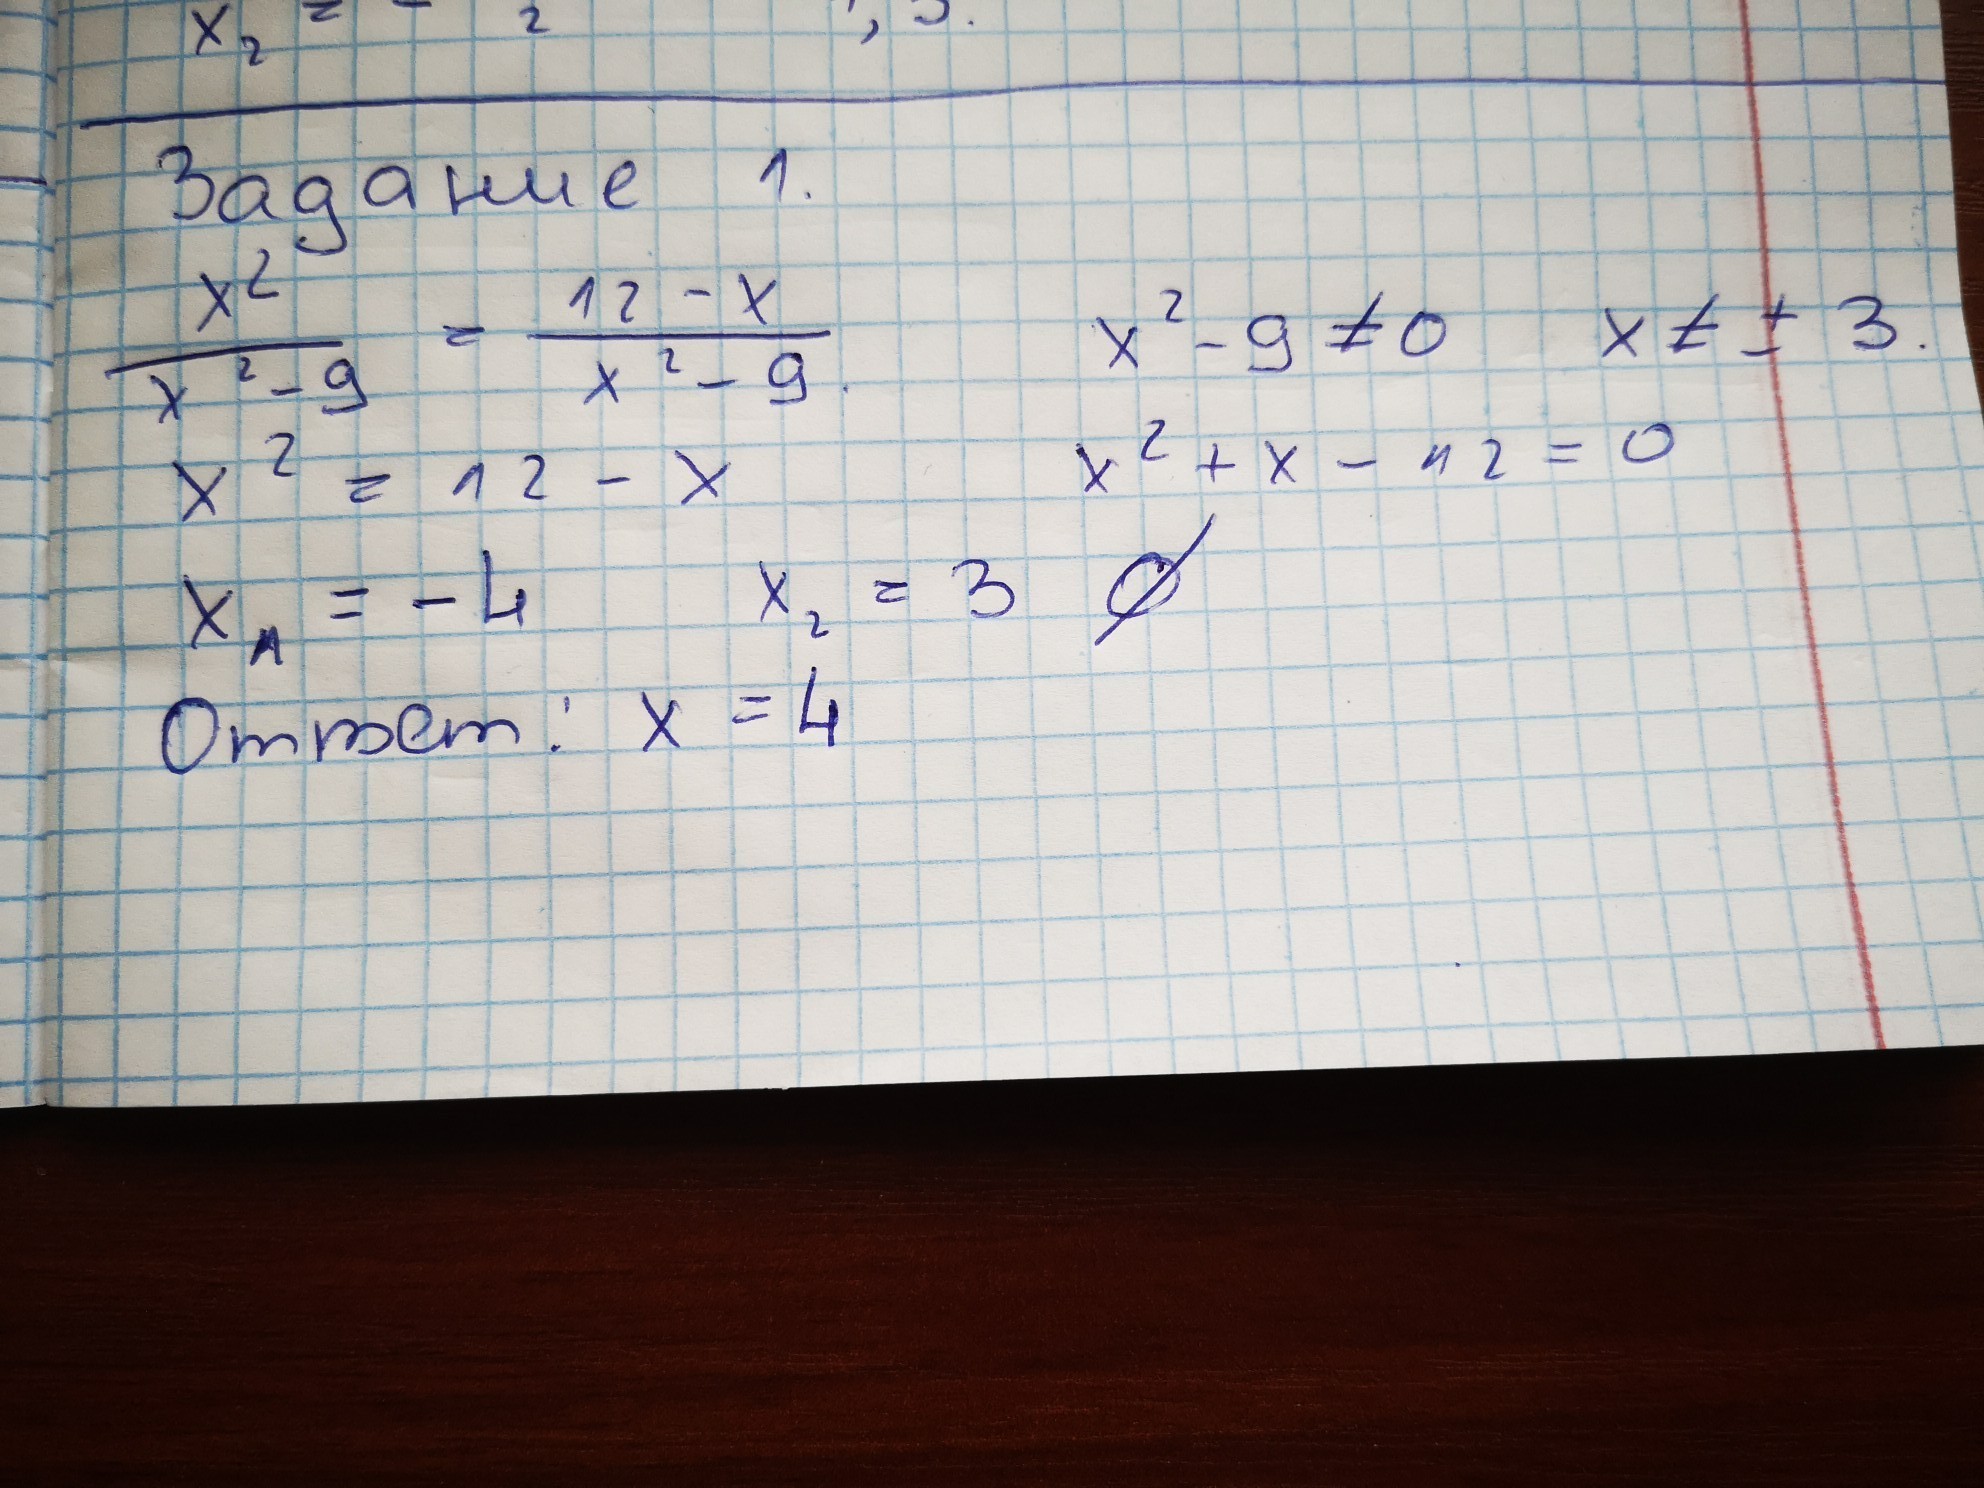 x₂ = - 2
Задание 1.
x² / (x² - 9) = (12 - x) / (x² - 9). x² - 9 ≠ 0 x ≠ ± 3.
x² = 12 - x x² + x - 12 = 0
x₁ = -4 x₂ = 3 ∅
Ответ: x = 4